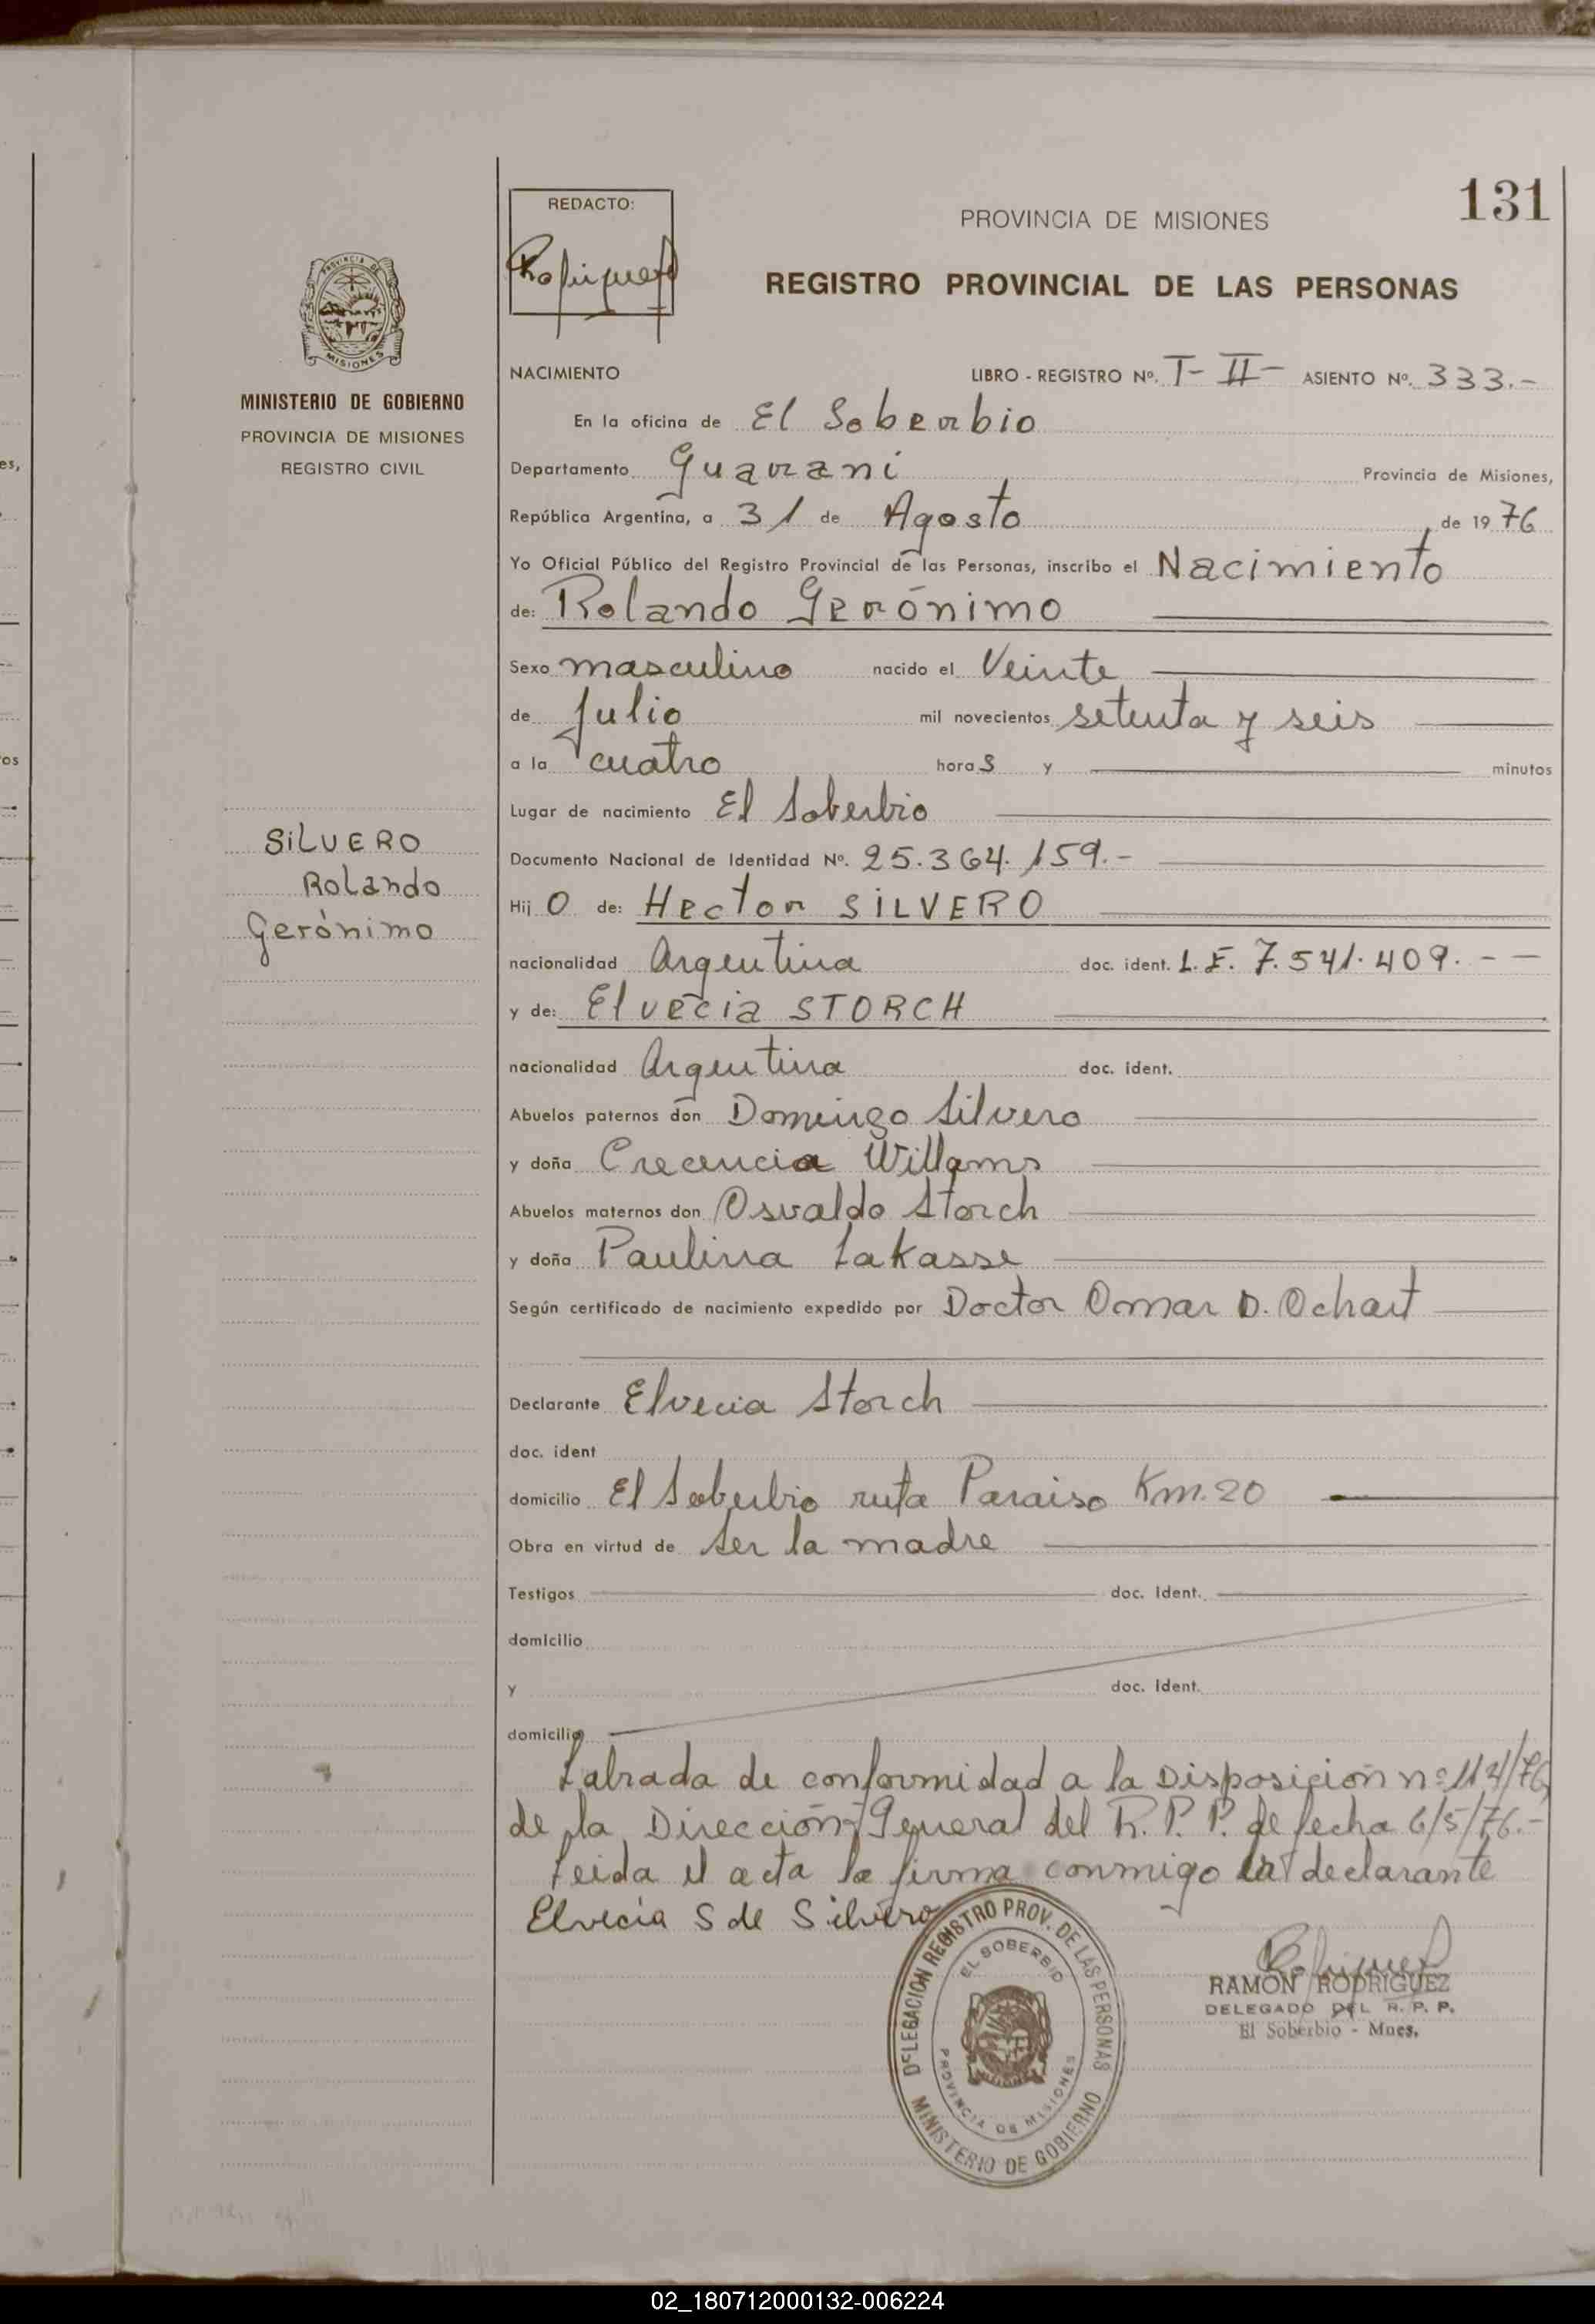 131
REDACTO:
PROVINCIA DE MISIONES
REGISTRO PROVINCIAL DE LAS PERSONAS
PROVINCIA DE
MISIONES
MINISTERIO DE GOBIERNO
PROVINCIA DE MISIONES
REGISTRO CIVIL
NACIMIENTO LIBRO - REGISTRO Nº. T- II- ASIENTO Nº. 333.-
En la oficina de El Soberbio
Departamento Guarani Provincia de Misiones,
República Argentina, a 31 de Agosto de 1976
Yo Oficial Público del Registro Provincial de las Personas, inscribo el Nacimiento
de: Rolando Gerónimo
Sexo masculino nacido el Veinte
de Julio mil novecientos setenta y seis
a la cuatro horas y minutos
Lugar de nacimiento El Soberbio
SILVERO
Rolando
Gerónimo
Documento Nacional de Identidad Nº. 25.364.159.-
Hijo de: Hector SILVERO
nacionalidad Argentina doc. ident. L.E. 7.541.409.--
y de: Elvecia STORCH
nacionalidad Argentina doc. ident.
Abuelos paternos don Domingo Silvero
y doña Crecencia Willams
Abuelos maternos don Osvaldo Storch
y doña Paulina Lakasse
Según certificado de nacimiento expedido por Doctor Omar D. Ochart
Declarante Elvecia Storch
doc. ident
domicilio El Soberbio ruta Paraiso Km.20
Obra en virtud de Ser la madre
Testigos doc. Ident.
domicilio
y doc. Ident.
domicilio
Labrada de conformidad a la Disposición nº 114/76
de la Dirección General del R.P.P. de fecha 6/5/76.-
Leida el acta la firma conmigo la declarante
Elvecia S de Silvero
DELEGACION REGISTRO PROV. DE LAS PERSONAS
EL SOBERBIO
PROVINCIA DE MISIONES
MINISTERIO DE GOBIERNO
RAMON RODRIGUEZ
DELEGADO DEL R. P. P.
El Soberbio - Mnes.
02_180712000132-006224